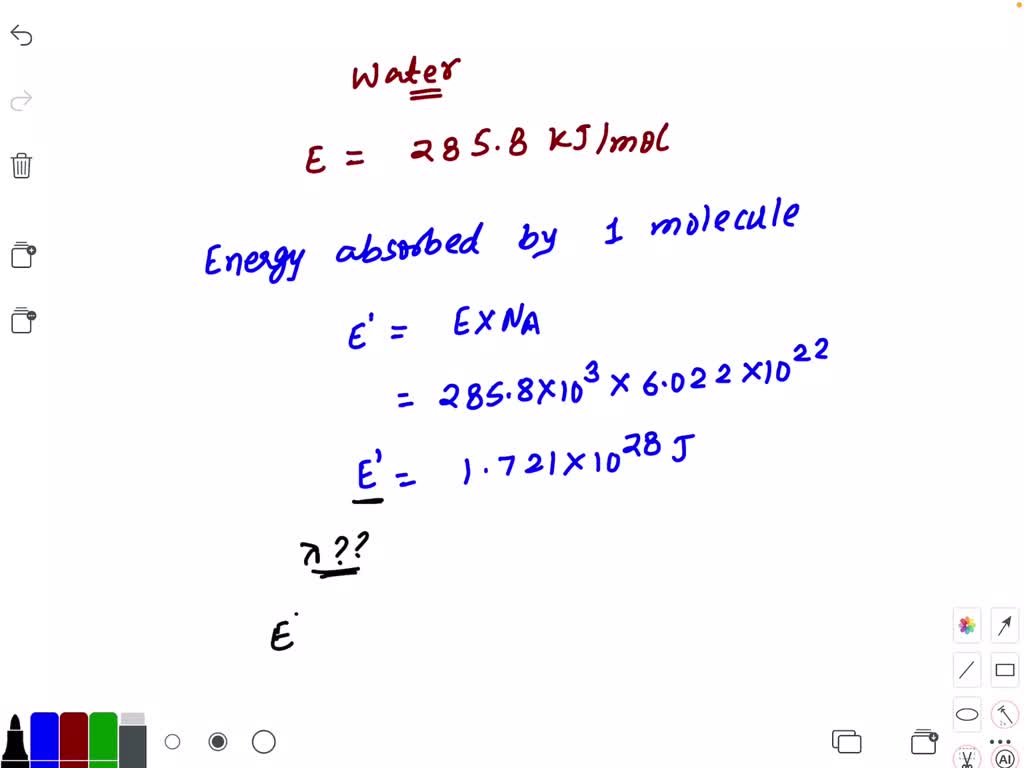 Water
E = 285.8 KJ/mol
Energy absorbed by 1 molecule
E' = E×NA
= 285.8×10³ × 6.022×10²²
E' = 1.721×10²⁸ J
λ??
E
AI